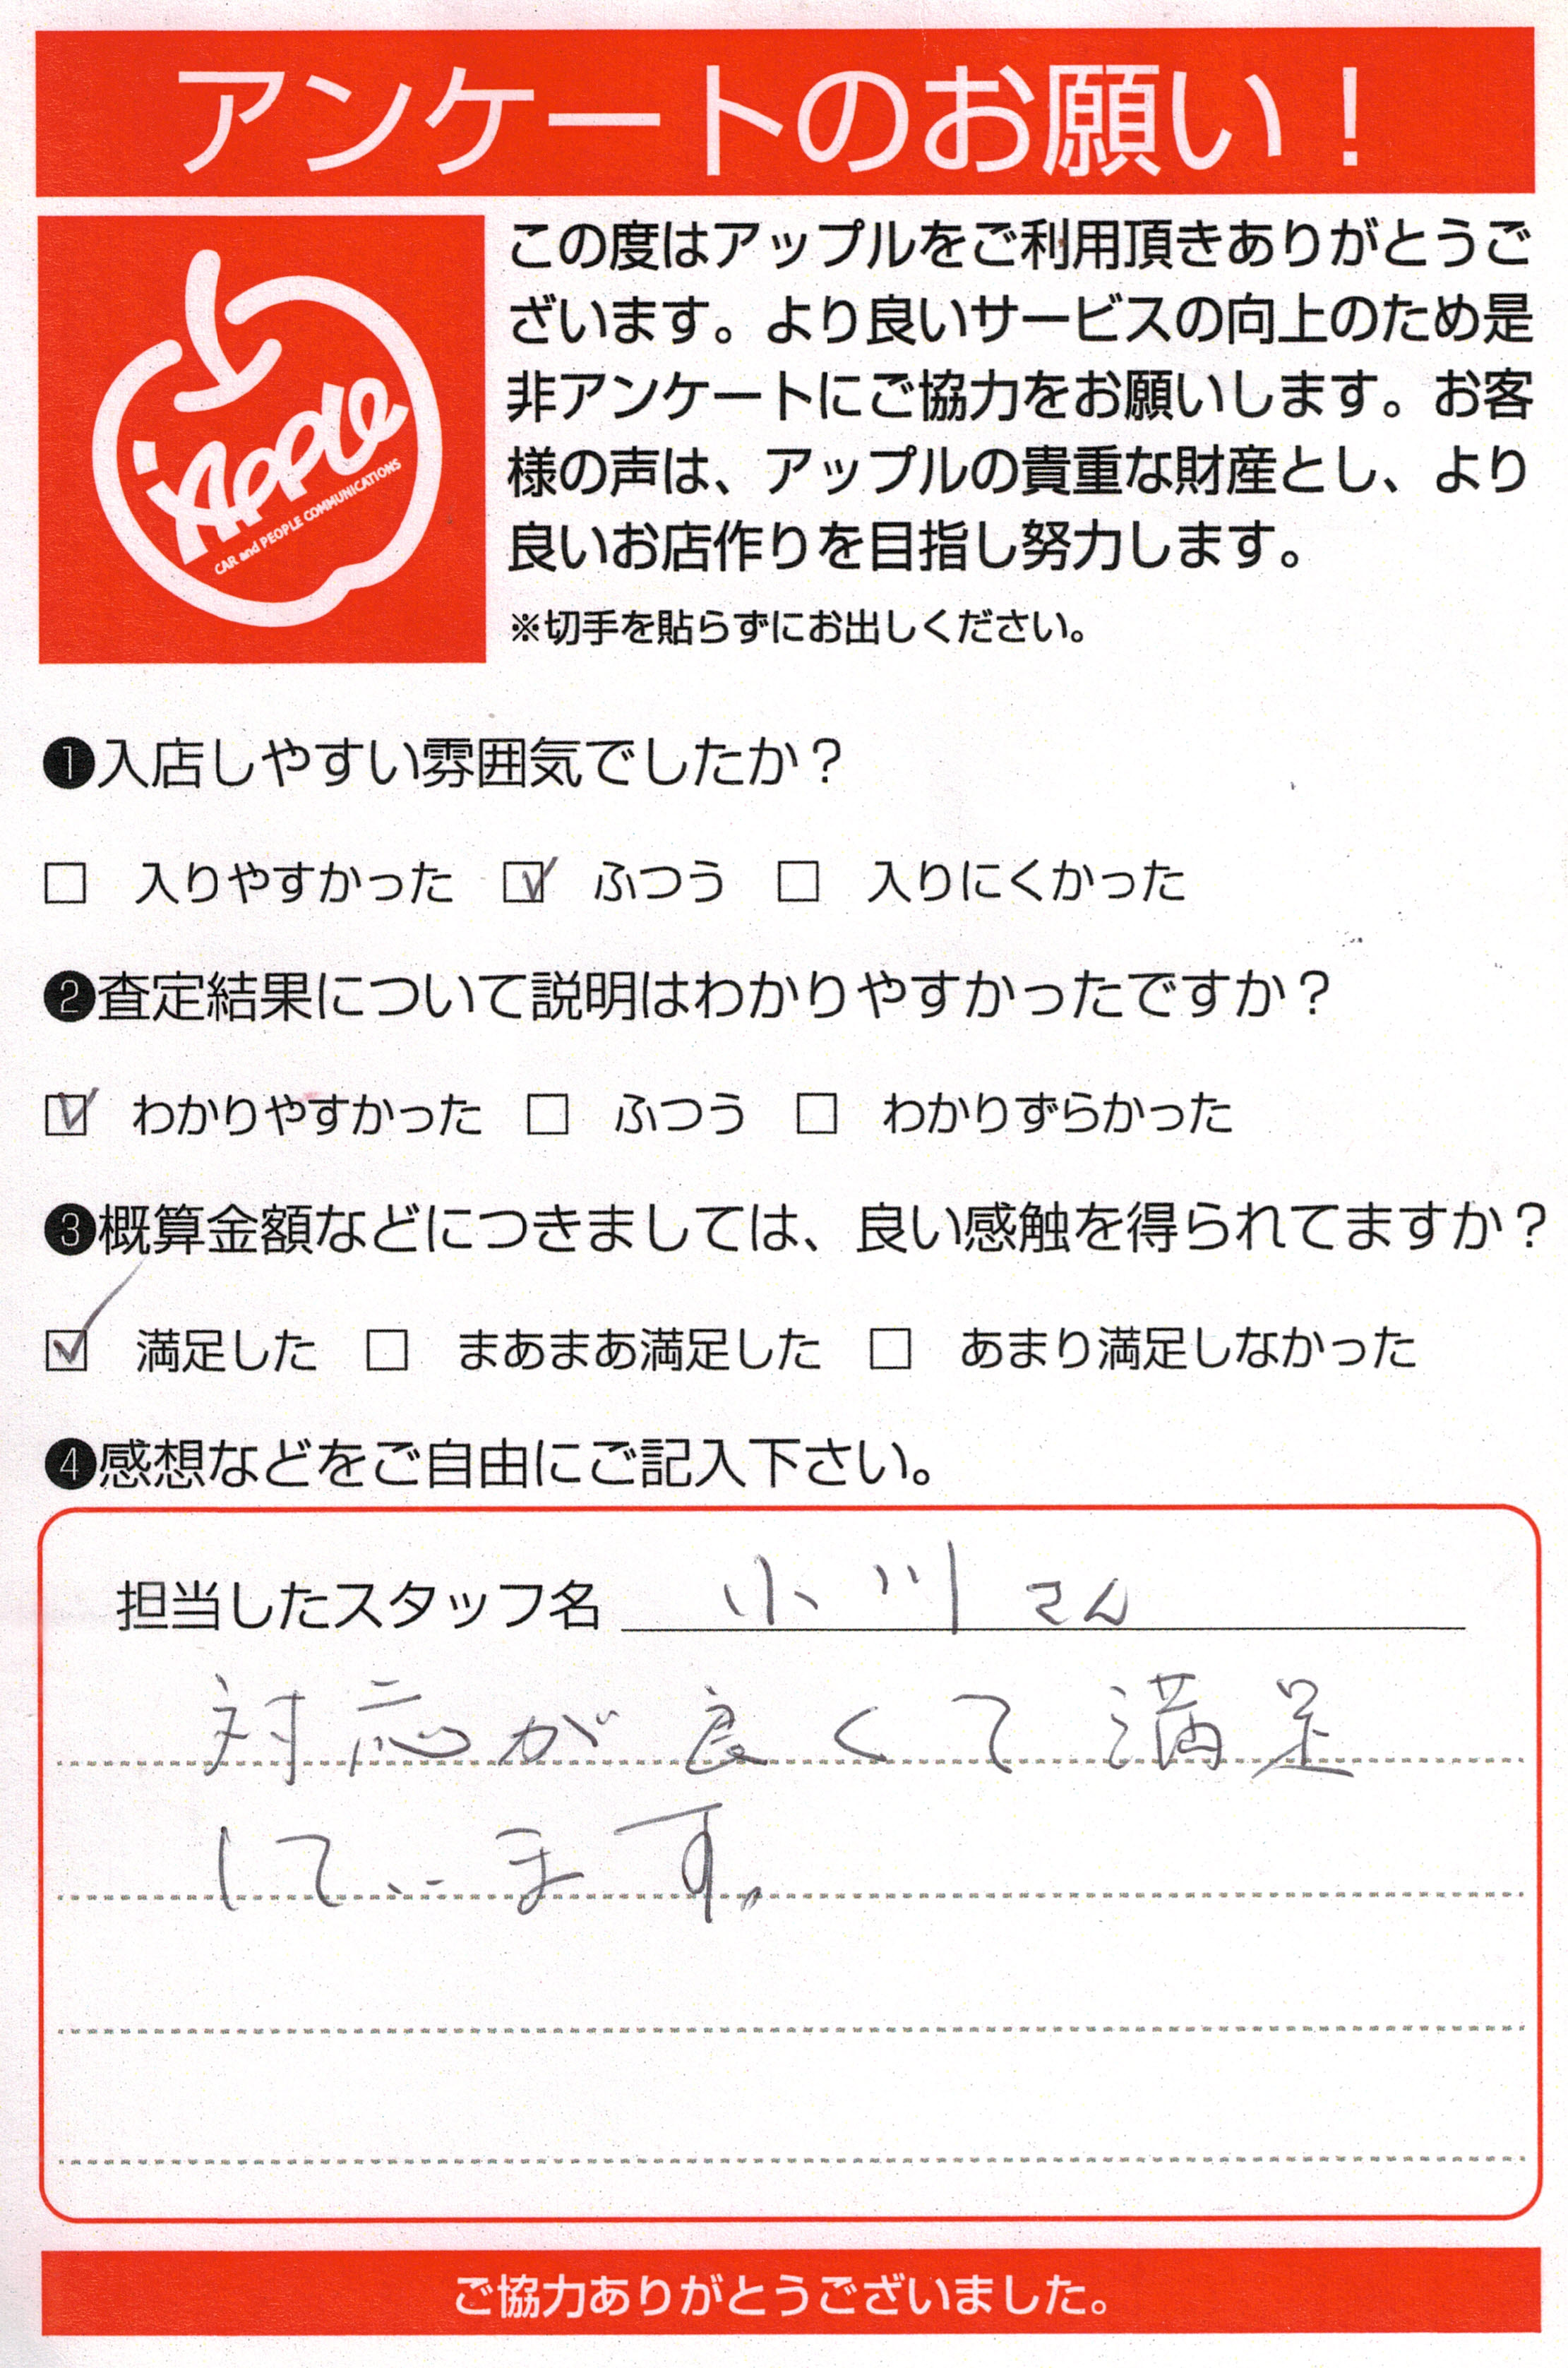 アンケートのお願い！
Apple
CAR and PEOPLE COMMUNICATIONS
この度はアップルをご利用頂きありがとうご
ざいます。より良いサービスの向上のため是
非アンケートにご協力をお願いします。お客
様の声は、アップルの貴重な財産とし、より
良いお店作りを目指し努力します。
※切手を貼らずにお出しください。
❶入店しやすい雰囲気でしたか？
□ 入りやすかった ☑ ふつう □ 入りにくかった
❷査定結果について説明はわかりやすかったですか？
☑ わかりやすかった □ ふつう □ わかりずらかった
❸概算金額などにつきましては、良い感触を得られてますか？
☑ 満足した □ まあまあ満足した □ あまり満足しなかった
❹感想などをご自由にご記入下さい。
担当したスタッフ名 小川さん
対応が良くて満足
しています。
ご協力ありがとうございました。